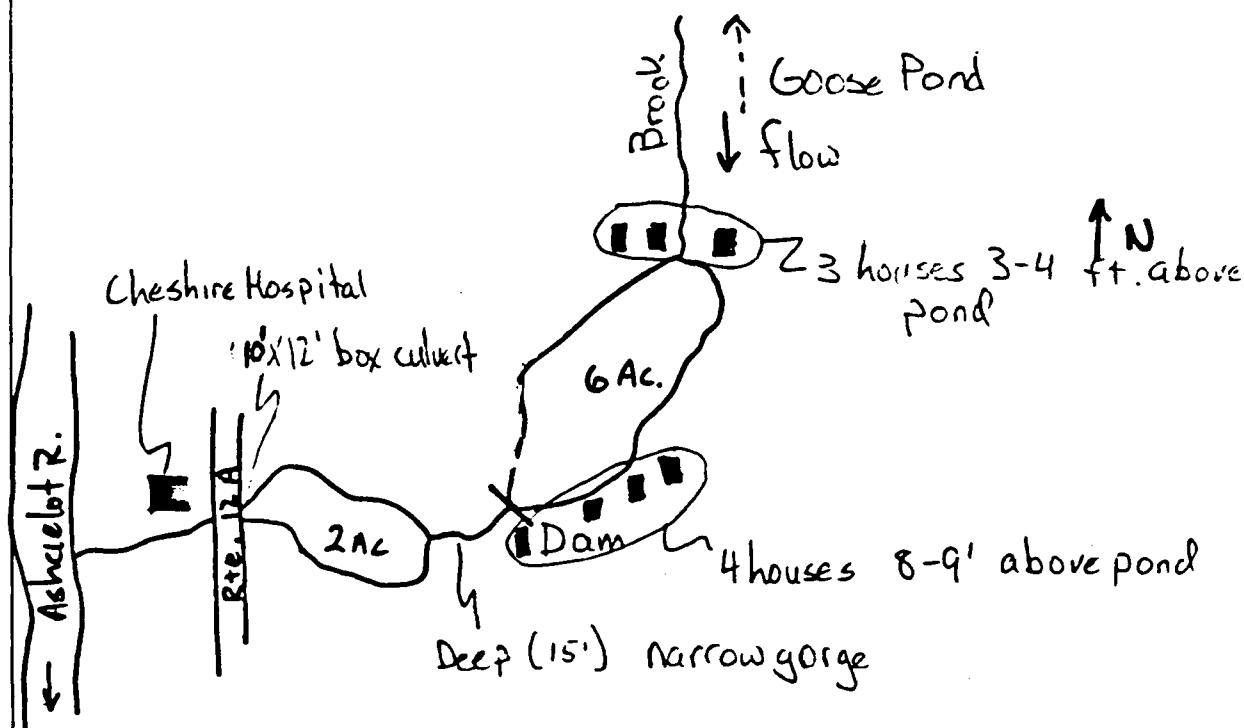 Brook
Goose Pond
flow
N
3 houses 3-4 ft. above
pond
Cheshire Hospital
10'x12' box culvert
6 Ac.
Ashuelot R.
Rte. 12A
2 Ac
Dam
4 houses 8-9' above pond
Deep (15') narrow gorge